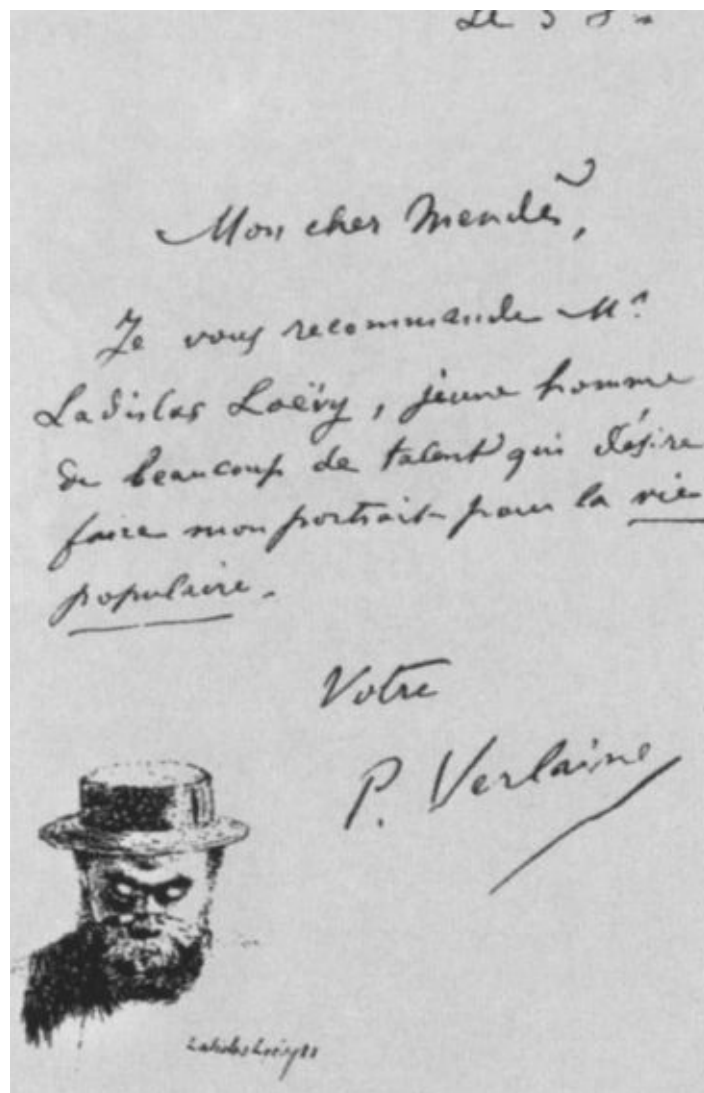 Le 5
Mon cher Mendès,
Je vous recommande Mr
Ladislas Loëvy, jeune homme
de beaucoup de talent qui désire
faire mon portrait pour la vie
populaire.
Votre
P. Verlaine
Ladislas Loëvy